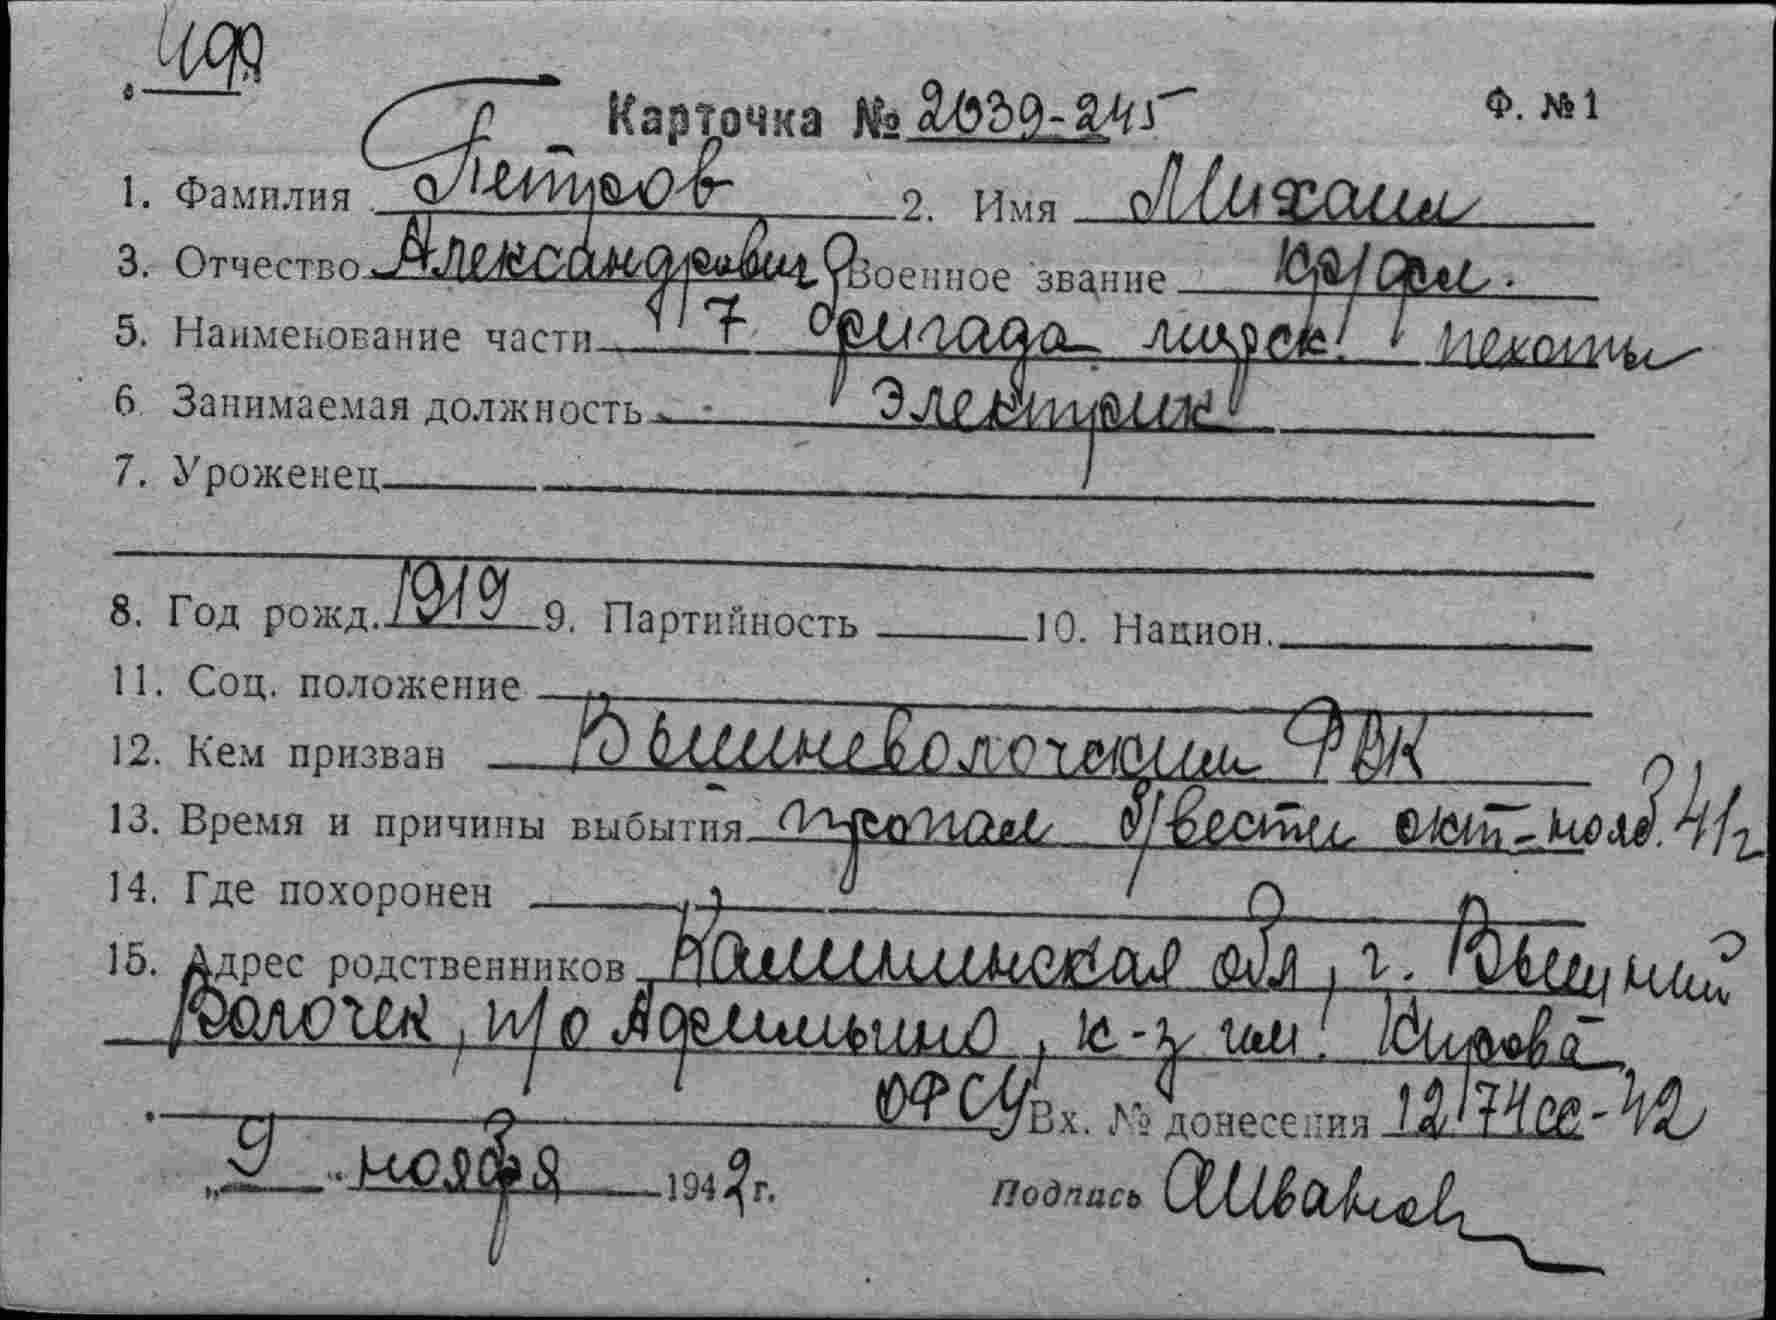 Карточка № 2039-245 Ф. №1
1. Фамилия Петров 2. Имя Михаил
3. Отчество Александрович Военное звание кр/фл.
5. Наименование части 7 бригада морск. пехоты
6. Занимаемая должность Электрик
7. Уроженец
8. Год рожд. 1919 9. Партийность 10. Национ.
11. Соц. положение
12. Кем призван Вышневолочским РВК
13. Время и причины выбытия пропал б/вести окт-нояб. 41г
14. Где похоронен
15. Адрес родственников Калининская обл, г. Вышний
Волочек, п/о , к-з им. Кирова
ОФСУ Вх. № донесения 12174сс-42
„9" ноября 1942г. Подпись АИванов